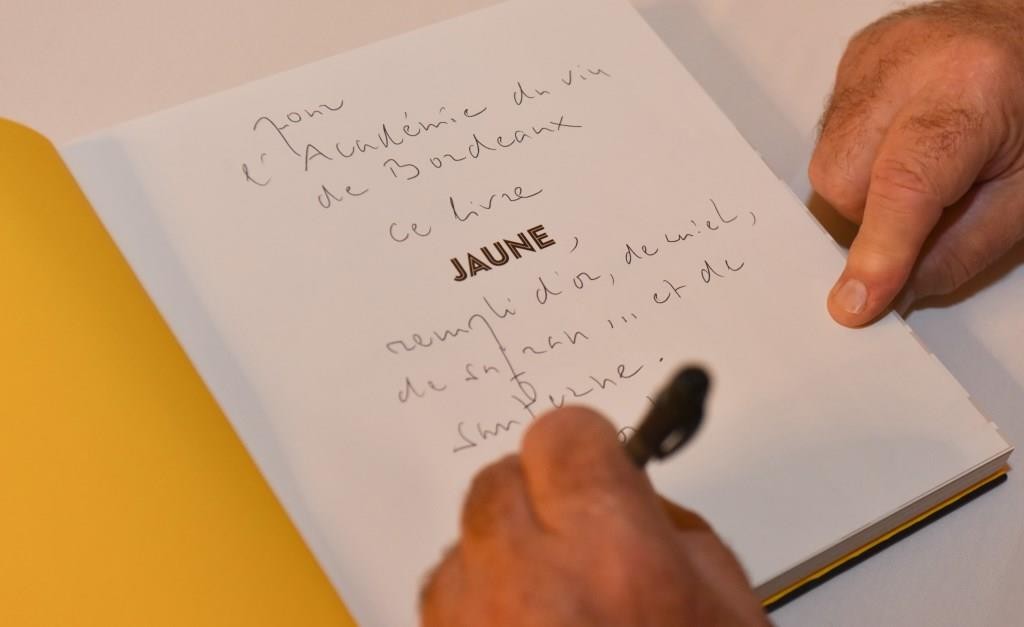 pour
l'Académie du vin
de Bordeaux
ce livre
JAUNE,
rempli d'or, de miel,
de safran ... et de
sauterne.